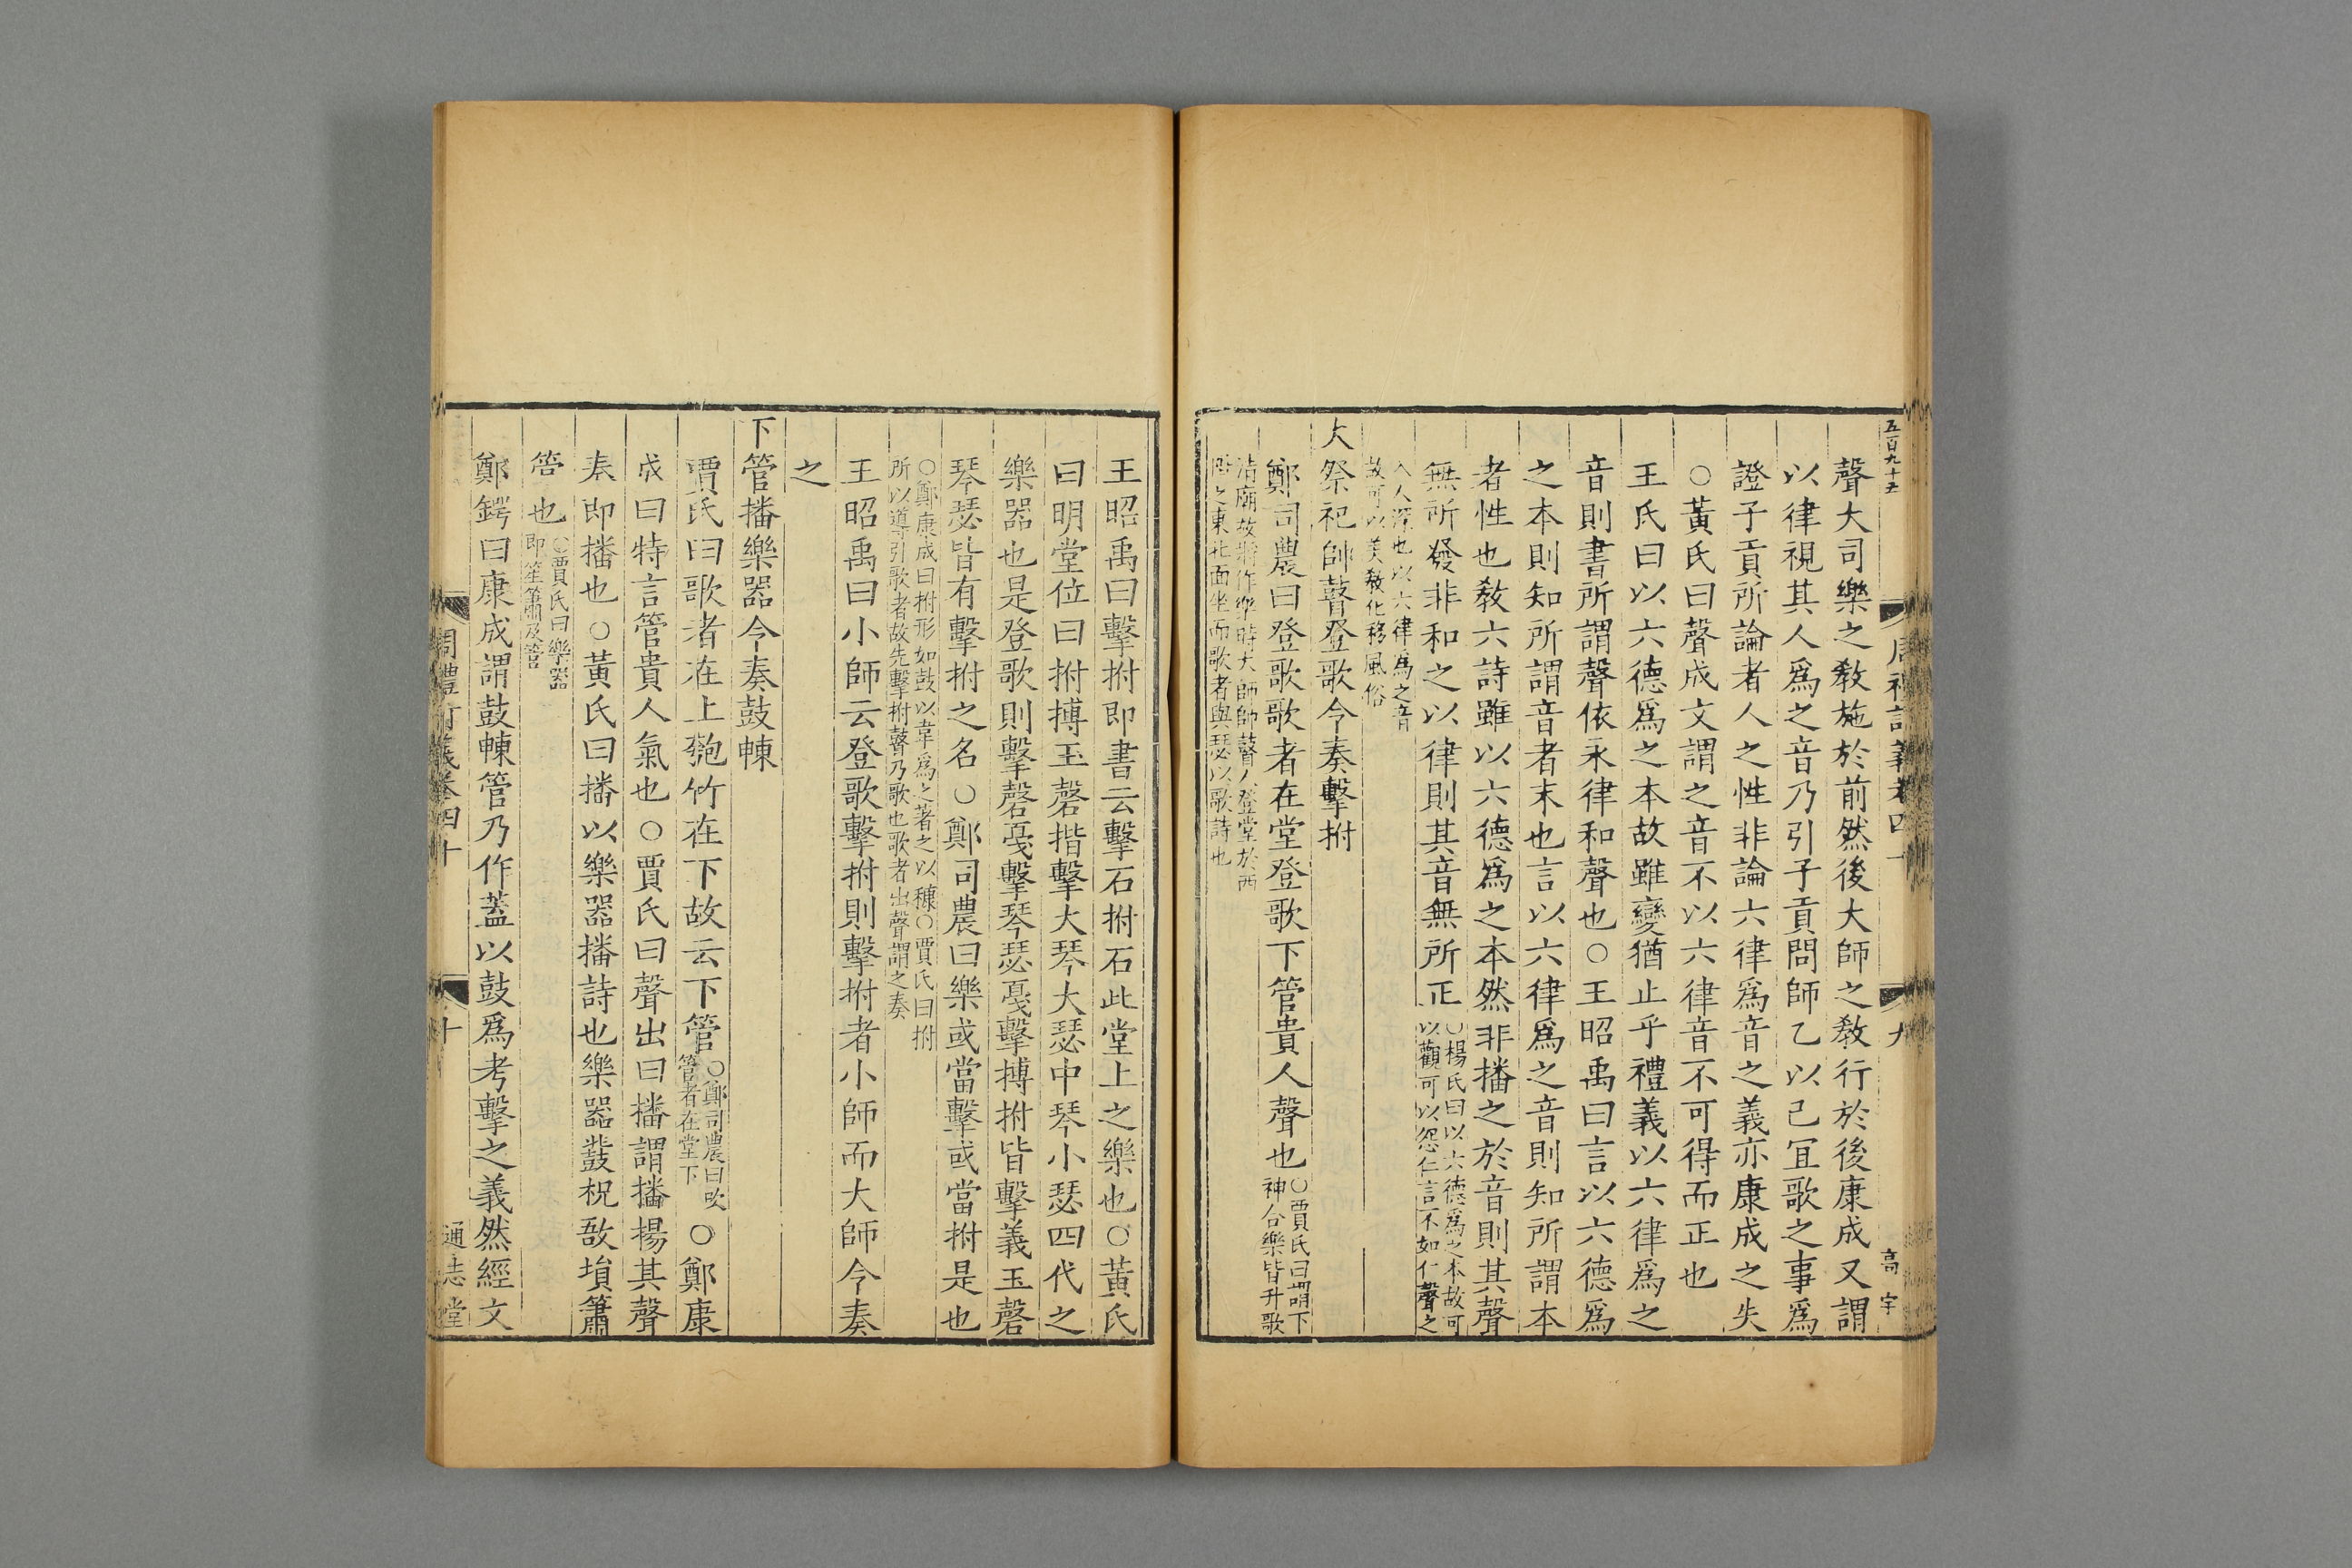 五百九十五
周禮訂義卷四十
九
高宇
聲大司樂之教施於前然後大師之教行於後康成又謂
以律視其人爲之音乃引子貢問師乙以己宜歌之事爲
證子貢所論者人之性非論六律爲音之義亦康成之失
○黃氏曰聲成文謂之音不以六律音不可得而正也
王氏曰以六德爲之本故雖變猶止乎禮義以六律爲之
音則書所謂聲依永律和聲也○王昭禹曰言以六德爲
之本則知所謂音者末也言以六律爲之音則知所謂本
者性也教六詩雖以六德爲之本然非播之於音則其聲
無所發非和之以律則其音無所正
○楊氏曰以六德爲之本故可
以觀可以怨仁言不如仁聲之
入人深也以六律爲之音
故可以美教化移風俗
大祭祀帥瞽登歌令奏擊拊
鄭司農曰登歌歌者在堂登歌下管貴人聲也
○賈氏曰謂下
神合樂皆升歌
清廟故將作樂時大師帥瞽人登堂於西
階之東北面坐而歌者與瑟以歌詩也
王昭禹曰擊拊即書云擊石拊石此堂上之樂也○黃氏
曰明堂位曰拊搏玉磬揩擊大琴大瑟中琴小瑟四代之
樂器也是登歌則擊磬戞擊琴瑟戞擊搏拊皆擊義玉磬
琴瑟皆有擊拊之名○鄭司農曰樂或當擊或當拊是也
○鄭康成曰拊形如鼓以韋爲之著之以穅○賈氏曰拊
所以導引歌者故先擊拊瞽乃歌也歌者出聲謂之奏
王昭禹曰小師云登歌擊拊則擊拊者小師而大師令奏
之
下管播樂器令奏鼓朄
賈氏曰歌者在上匏竹在下故云下管
○鄭司農曰吹
管者在堂下
○鄭康
成曰特言管貴人氣也○賈氏曰聲出曰播謂播揚其聲
奏即播也○黃氏曰播以樂器播詩也樂器鼗柷敔塤簫
管也
○賈氏曰樂器
即笙簫及管
鄭鍔曰康成謂鼓朄管乃作蓋以鼓爲考擊之義然經文
周禮訂義卷四十
十
通志堂